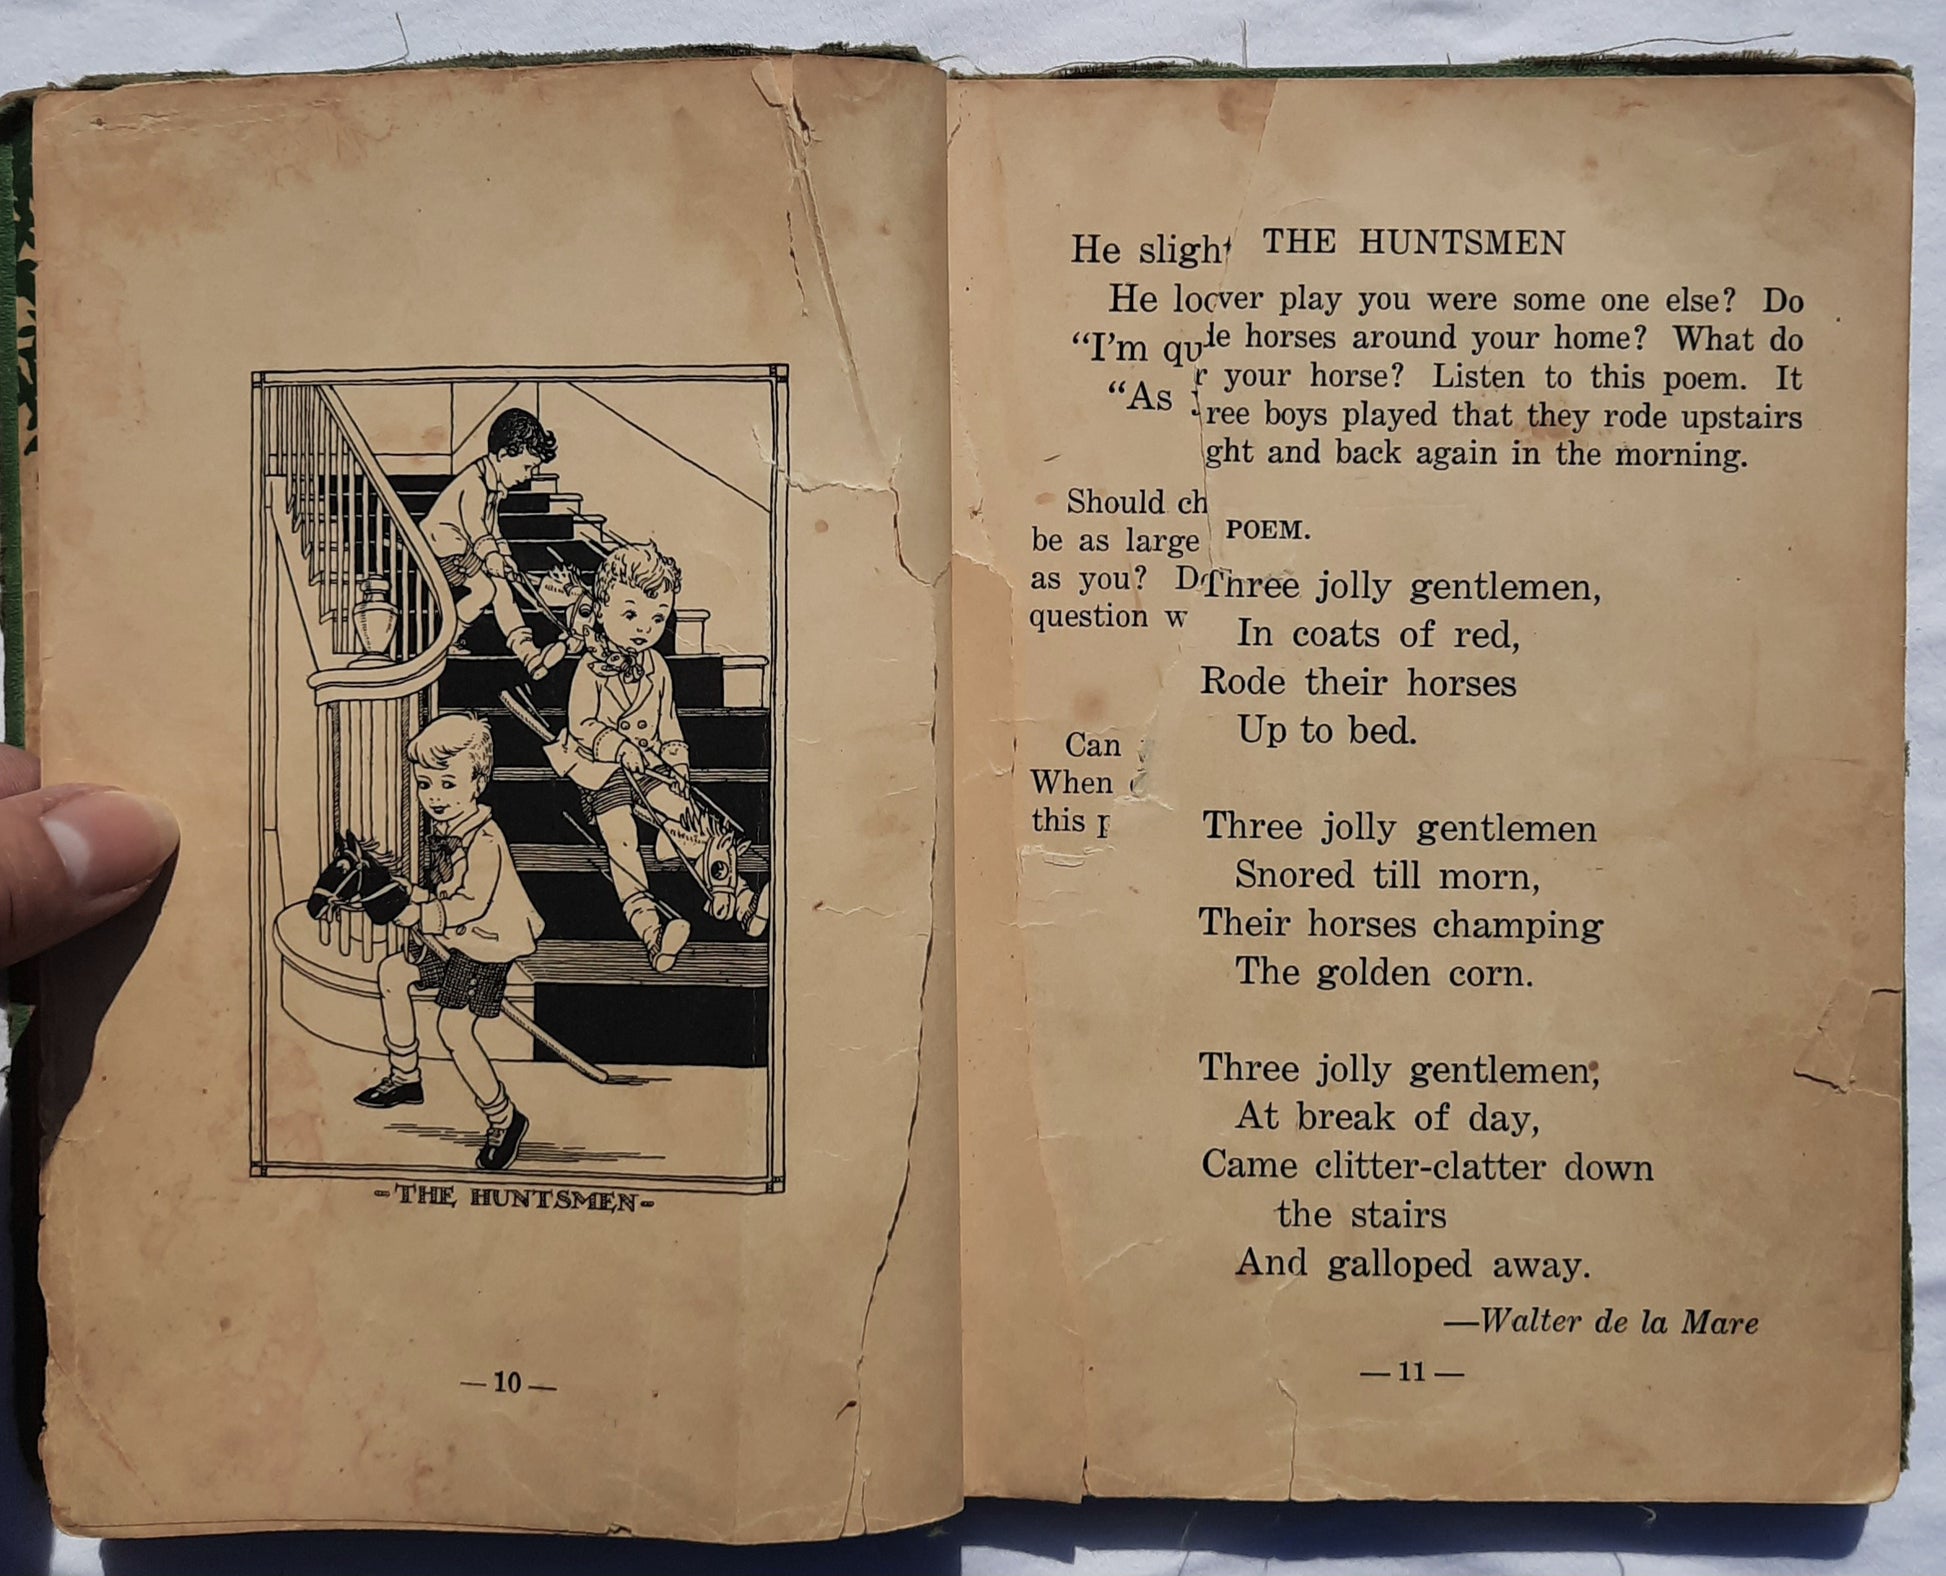 -THE HUNTSMEN-
—10—
He
THE HUNTSMEN
He
ver play you were some one else? Do
"I'm
horses around your home? What do
"As
your horse? Listen to this poem. It
ree boys played that they rode upstairs
ght and back again in the morning.
Should ch
POEM.
be as large
as you?
Three jolly gentlemen,
question w
In coats of red,
Rode their horses
Up to bed.
Can
When
this
Three jolly gentlemen
Snored till morn,
Their horses champing
The golden corn.
Three jolly gentlemen,
At break of day,
Came clitter-clatter down
the stairs
And galloped away.
—Walter de la Mare
—11—